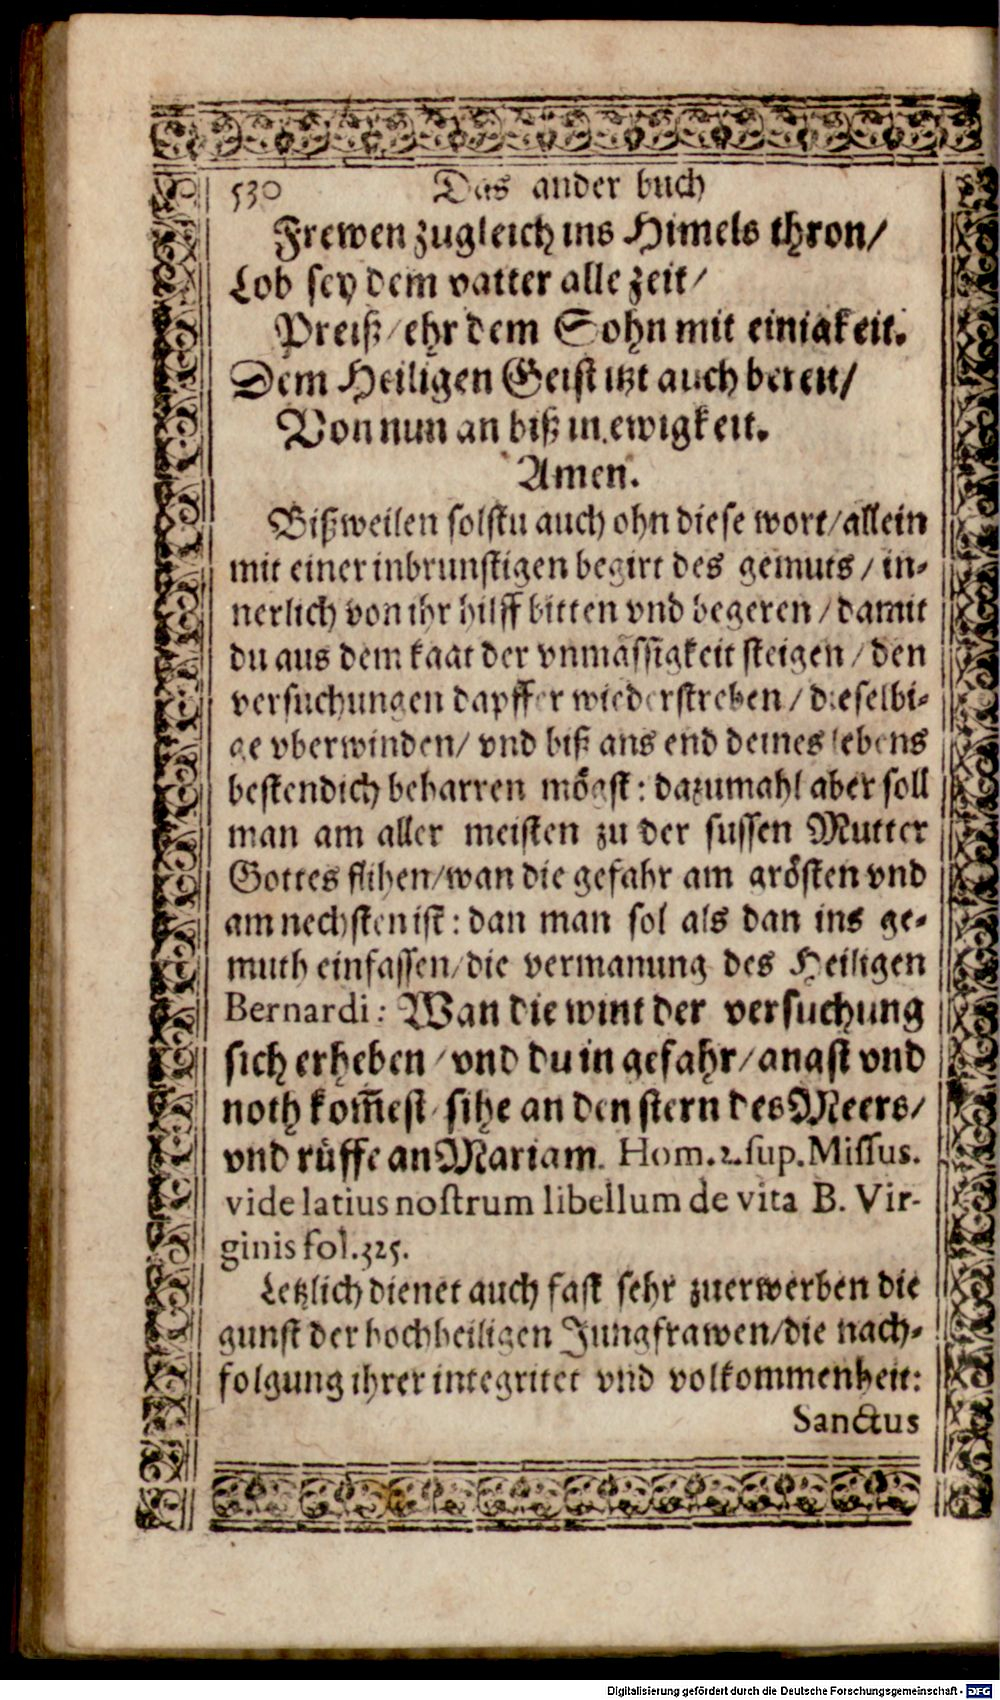 530 Das ander buch
Frewen zugleich ins Himels thron/
Lob sey dem vatter alle zeit/
Preiß/ehr dem Sohn mit einigkeit.
Dem Heiligen Geist itzt auch bereit/
Von nun an biß in ewigkeit.
Amen.
Bißweilen solstu auch ohn diese wort/allein
mit einer inbrunstigen begirt des gemuts/in-
nerlich von ihr hilff bitten vnd begeren/damit
du aus dem kaat der vnmässigkeit steigen/den
versuchungen dapffer wiederstreben/dieselbi-
ge vberwinden/vnd biß ans end deines lebens
bestendich beharren mögst: dazumahl aber soll
man am aller meisten zu der sussen Mutter
Gottes flihen/wan die gefahr am grösten vnd
am nechsten ist: dan man sol als dan ins ge-
muth einfassen/die vermanung des Heiligen
Bernardi: Wan die wint der versuchung
sich erheben/vnd du in gefahr/angst vnd
noth kom̃est/sihe an den stern des Meers/
vnd rüffe an Mariam. Hom.2.sup.Missus.
vide latius nostrum libellum de vita B. Vir-
ginis fol.325.
Letzlich dienet auch fast sehr zuerwerben die
gunst der hochheiligen Jungfrawen/die nach-
folgung ihrer integritet vnd volkommenheit:
Sanctus
Digitalisierung gefördert durch die Deutsche Forschungsgemeinschaft - DFG